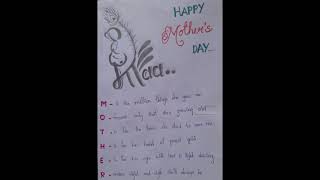 HAPPY
Mother's
DAY
Maa..
M - is the million things she gave me
O - means only that she's growing old
T - is for the tears she shed to save me
H - is for her heart of purest gold
E - is for her eyes with love light shining
R - means right and right she'll always be